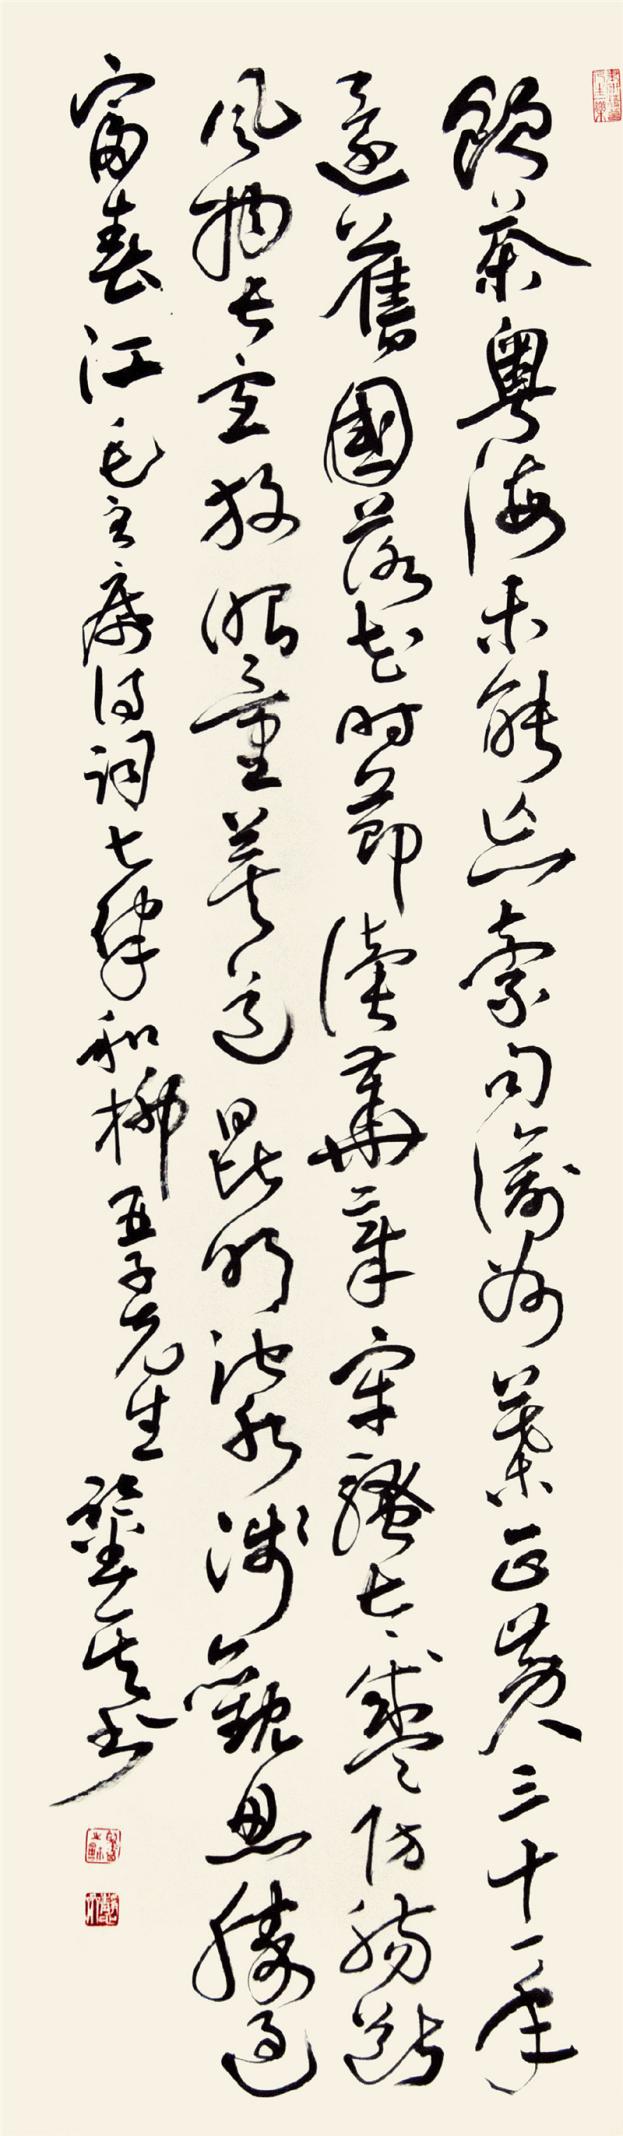 飲茶粵海未能忘索句渝州葉正黃三十一年
還舊國落花時節讀華章牢騷太盛防腸斷
風物長宜放眼量莫道昆明池水淺觀魚勝過
富春江毛主席詩詞七律和柳亞子先生 書